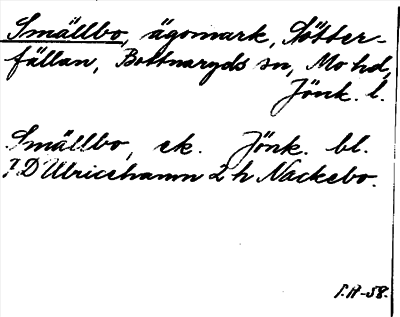 Smällbo, ägomark, Slätter-
fällan, Bottnaryds sn, Mo hd,
Jönk. l.
Smällbo, ek. Jönk. bl.
7 D Ulricehamn 2 h Nackebo.
-58.